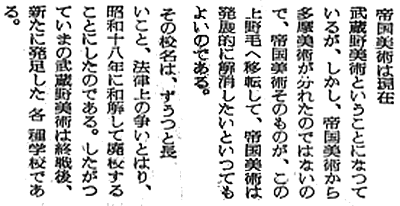 帝国美術は現在
武蔵野美術ということになつて
いるが、しかし、帝国美術から
多摩美術が分れたのではないの
で、帝国美術そのものが、この
上野毛へ移転して、帝国美術は
発展的に解消したいといつても
よいのである。
その校名は、ずうつと長
いこと、法律上の争いとはり、
昭和十八年に和解して廃校する
ことにしたのである。したがつ
ていまの武蔵野美術は終戦後、
新たに発足した各種学校であ
る。